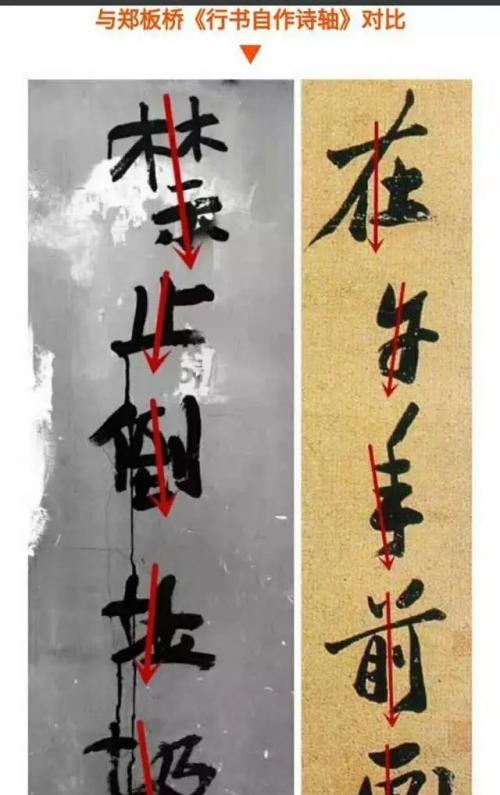 与郑板桥《行书自作诗轴》对比
禁止倒垃圾
在 前